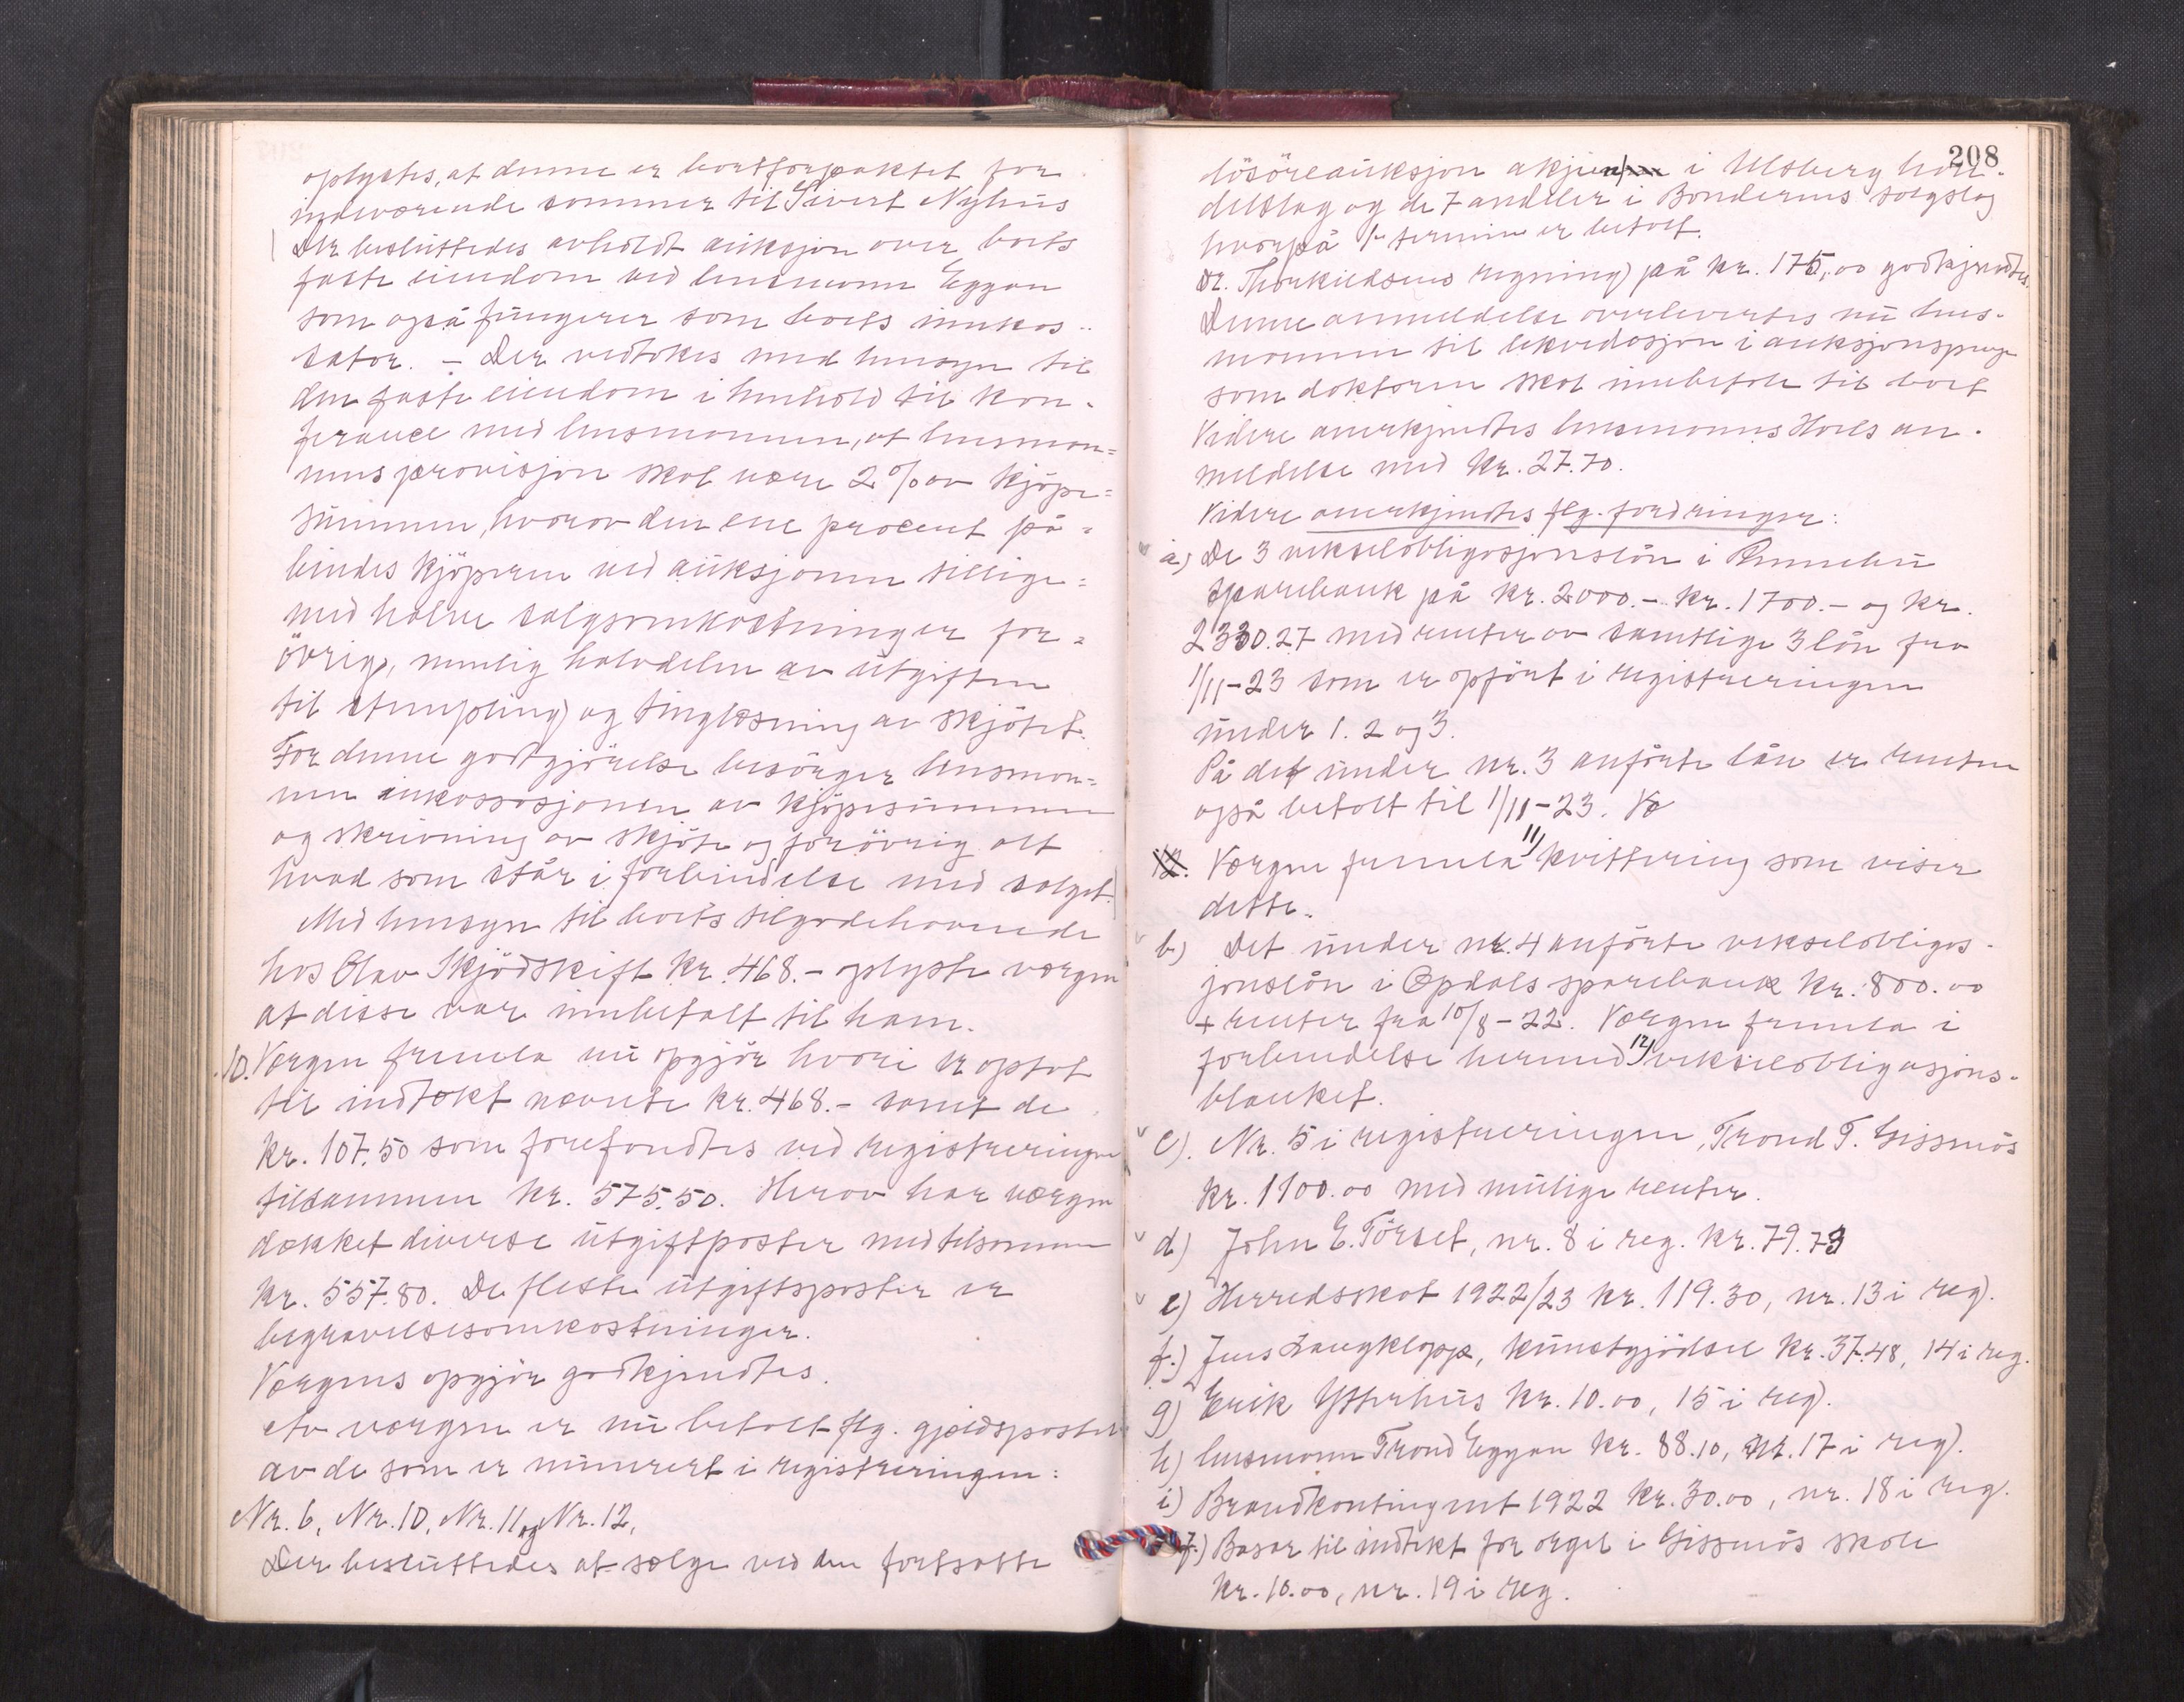 oplystes, at denne er bortforpaktet for
indeværende sommer til Sivert Nyhus
Der besluttedes avholdt auksjon over boets
faste eiendom ved lensmann Eggan
som også fungerer som boets inkas-
sator. – Der vedtokes med hensyn til
den faste eiendom i henhold til kon-
ferance med lensmannen, at lensman=
nens provisjon skal være 2% av kjøpe=
summen, hvorav den ene procent på=
bindes kjøperen ved auksjonen tillige=
med halve salgsomkostninger for=
øvrig, nemlig halvdelen av utgiften
til stempling og tinglæsning av skjøtet.
For denne godtgjørelse besørger lensman=
nen inkassasjonen av kjøpesummen
og skrivning av skjøte og forøvrig alt
hvad som står i forbindelse med salget.
Med hensyn til boets tilgodehavende
hos Olav Skjødskift kr. 468.- oplyste værgen
at disse var innbetalt til ham.
10. Værgen fremla nu opgjør hvori er optat
til indtækt nævnte kr. 468.- samt de
kr. 107.50 som forefandtes ved registreringen
tilsammen kr. 575.50. Herav har værgen
dækket diverse utgiftposter med tilsammen
kr. 557.80. De fleste utgiftsposter er
begravelsesomkostninger.
Værgens opgjør godkjendtes.
Av værgen er nu betalt flg. gjældsposter
av de som er numrert i registreringen:
Nr. 6, Nr. 10, Nr. 11 og Nr. 12,
Der besluttedes at sælge ved den fortsatte
208
løsøreauksjon aksjen i Ulsberg han-
delslag og de 7 andeler i Bøndernes salgslag
hvorpå 1ste termin er betalt.
Dr. Thorkildsens regning på kr. 175,00 godkjendtes.
Denne anmeldelse overlevertes nu lens-
mannen til likvidasjon i auksjonspenge
som doktoren skal innbetale til boet
Videre anerkjendtes lensmannens Hoels an-
meldelse med kr. 27.70.
Videre anerkjendtes flg. fordringer:
a) De 3 vekselobligasjonslån i Rennebu
Sparebank på kr. 2000.- kr. 1700.- og kr.
2330.27 med renter av samtlige 3 lån fra
1/11-23 som er opført i registreringen
under 1. 2 og 3.
På det under nr. 3 anførte lån er renten
også betalt til 1/11-23.
Værgen fremla 11) kvittering som viser
dette.
b) Det under nr. 4 anførte vekselobligas-
jonslån i Opdals sparebank kr. 800.00
+ renter fra 10/8-22. Værgen fremla i
forbindelse hermed 12) vekselobligasjons-
blanket.
c). Nr. 5 i registreringen, Trond T. Gissnås
kr. 1100.00 med mulige renter.
d) John E. Tørset, nr. 8 i reg. kr. 79.73
e) Herredsskat 1922/23 kr. 119.30, nr. 13 i reg.
f.) Jens Langklopp, kunstgjødsel kr. 37.48, 14 i reg.
g) Erik Ytterhus kr. 10.00, 15 i reg.
h) lensmann Trond Eggan kr. 88.10, nr. 17 i reg.
i) Brandkontingent 1922 kr. 30.00, nr. 18 i reg.
j.) Basar til indtekt for orgel i Gissnås skole
kr. 10.00, nr. 19 i reg.